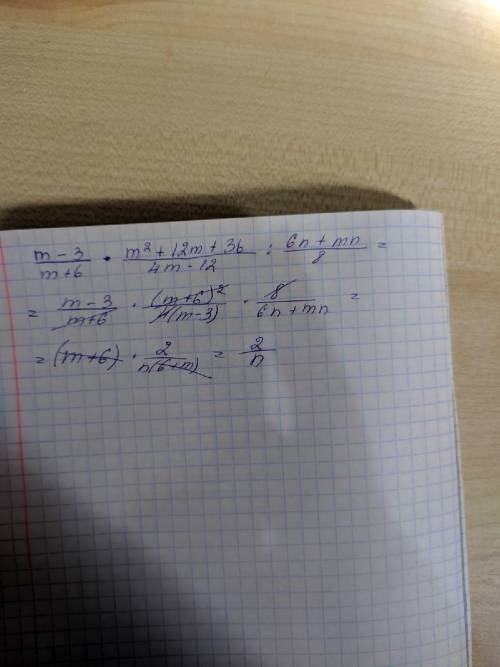 (m-3)/(m+6) · (m²+12m+36)/(4m-12) : (6n+mn)/8 =
= (m-3)/(m+6) · (m+6)²/(4(m-3)) · 8/(6n+mn) =
= (m+6) · 2/(n(6+m)) = 2/n